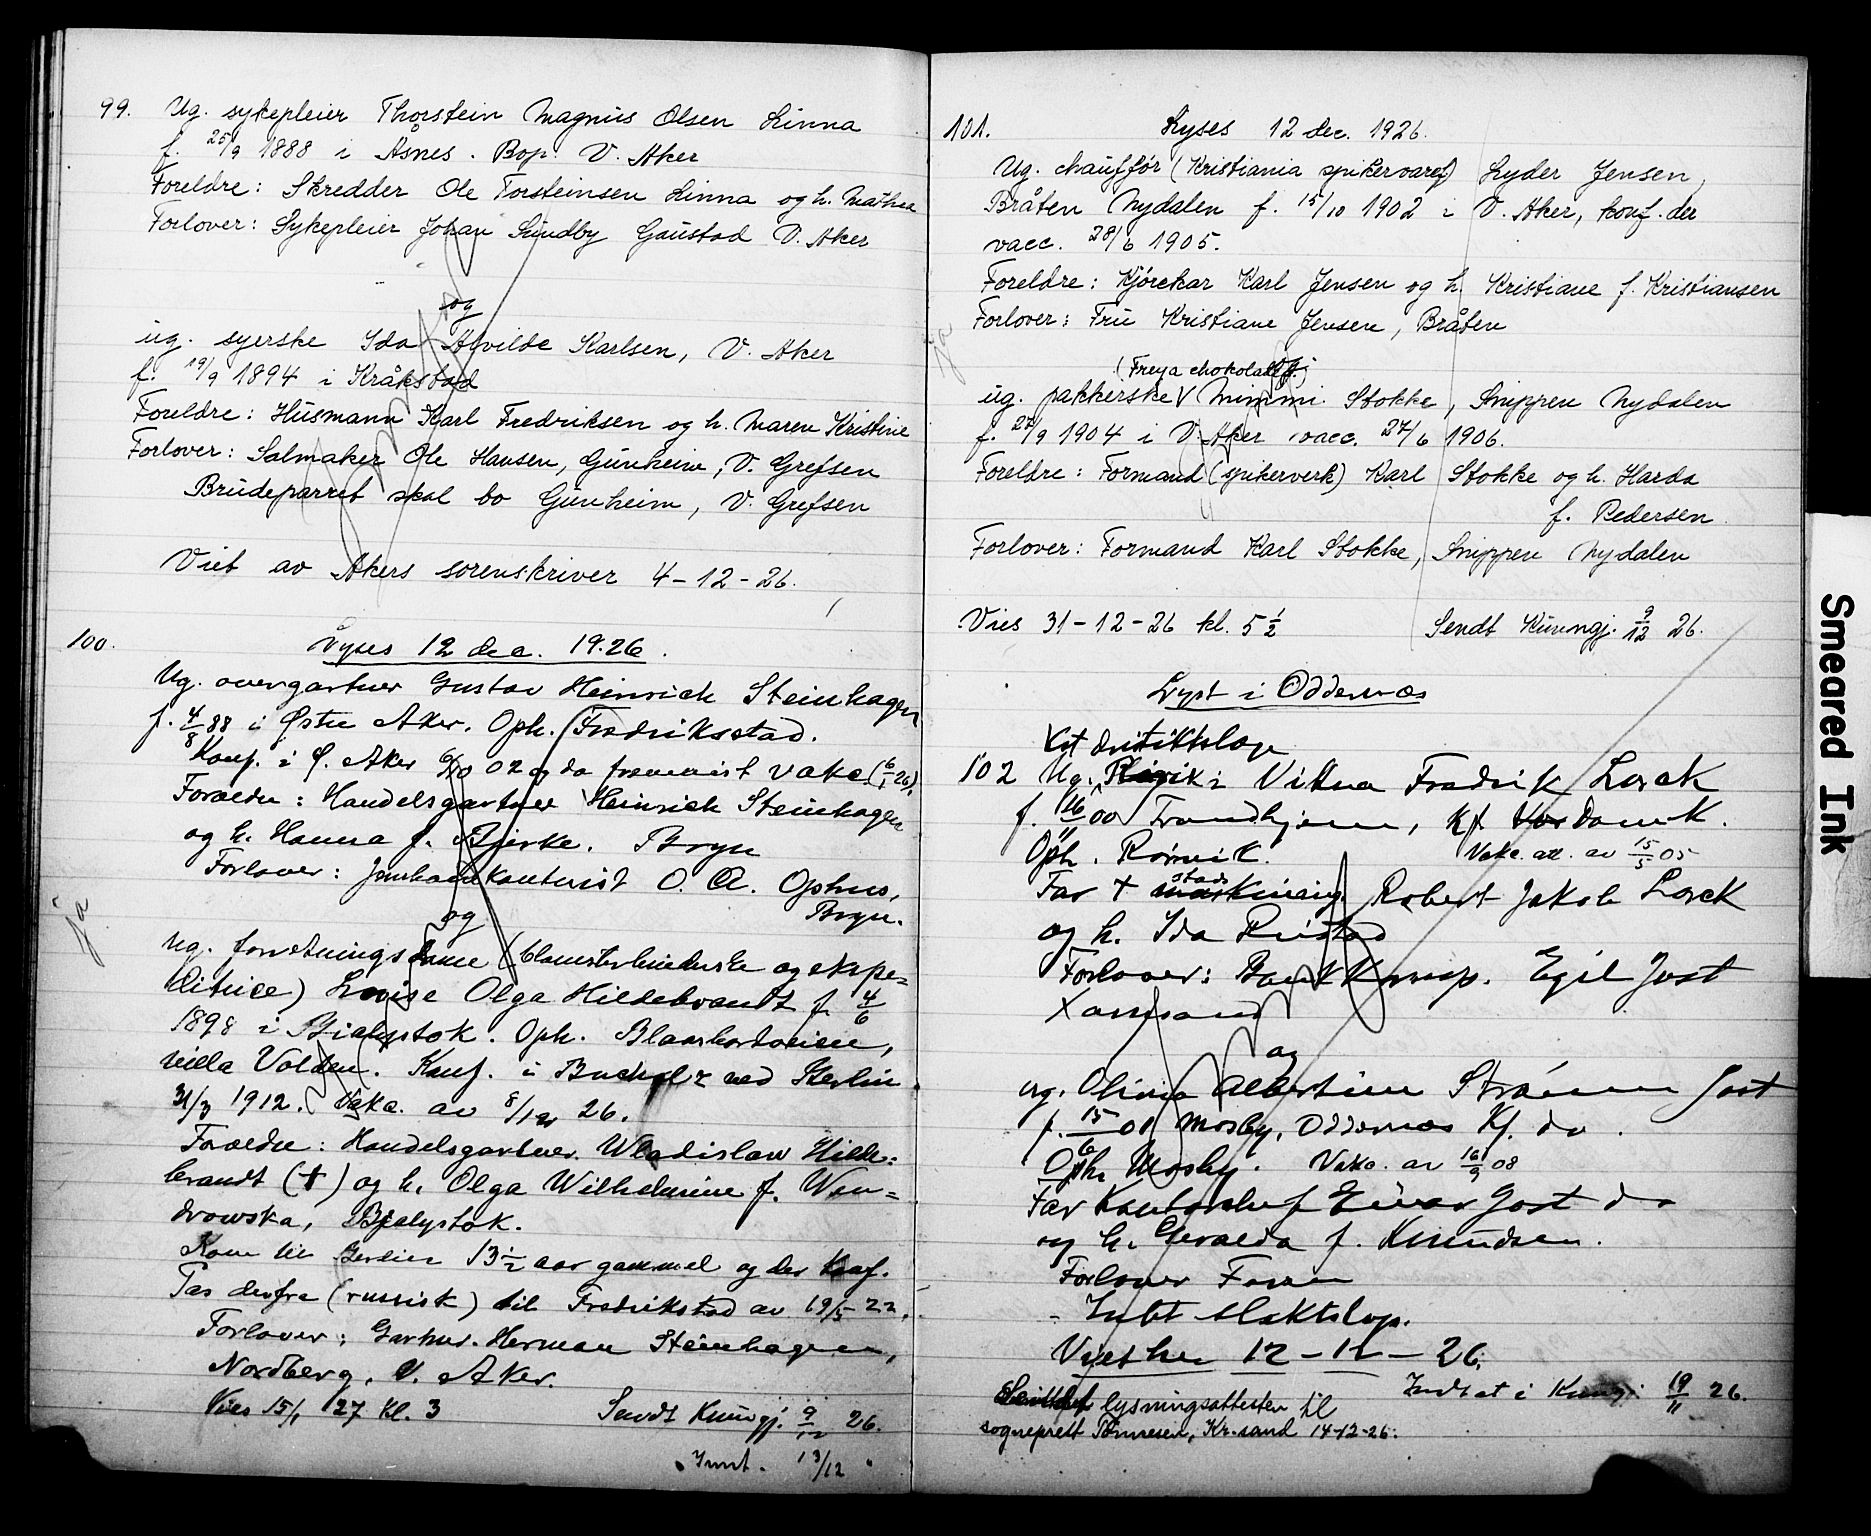 99. Ug. sykepleier Thorstein Magnus Olsen Linna
f. 25/9 1888 i Åsnes. Bop. V. Aker
Foreldre: Skredder Ole Torsteinsen Linna og h. Mathea
Forlover: Sykepleier Johan Sundby Gaustad V. Aker
og
ug. syerske Ida Alvilde Karlsen, V. Aker
f. 19/9 1894 i Kråkstad
Foreldre: Husmann Karl Fredriksen og h. Maren Kristine
Forlover: Salmaker Ole Hansen, Gunheim, V. Grefsen
Brudeparret skal bo Gunheim, V. Grefsen
Viet av Akers sorenskriver 4-12-26.
100. Lyses 12 dec. 1926.
Ug. overgartner Gustav Heinrich Steinhagen
f. 4/8 88 i Østre Aker. Oph. Fredriksstad.
Konf. i Ø. Aker 02 og da fremvist vakc.
Forældre: Handelsgartner Heinrich Steinhagen
og h. Hanna f. Bjerke. Bryn
Forlover: Jernbanekontorist O. A. Ophus,
Bryn.
og
Ug. forretningsdame (blomsterbinderske og ekspe=
ditrice) Louise Olga Hildebrandt f. 4/6
1898 i Bialystok. Oph.
villa Volden. Konf. i Bucholz ved Berlin
31/3 1912. Vakc. av 8/12 26.
Forældre: Handelsgartner Wladislaw Hilde=
brandt (†) og h. Olga Wilhelmine f. Wen=
drowska, Bjalystok.
Kom til Berlin 13 1/2 aar gammel og der konf.
Pas derfra (russisk) til Fredrikstad av 19/5 22.
Forlover: Gartner Herman Steinhagen,
Nordberg, V. Aker.
Vies 15/1 27 kl. 3 Sendt Kunngj. 9/12 26.
Innt. 13/12
ja
101. Lyses 12 dec. 1926.
Ug. chauffør (Kristiania spikervaref) Lyder Jensen,
Bråten Nydalen f. 15/10 1902 i V. Aker, konf. der
vacc. 28/6 1905.
Foreldre: Kjørekar Karl Jensen og h. Kristiane f. Kristiansen
Forlover: Fru Kristiane Jensen, Bråten
ja
(Freya chokoladef.)
ug. pakkerske V Mimmi Stokke, Snippen Nydalen
f. 22/9 1904 i V. Aker vacc. 27/6 1906.
Foreldre: Formand (spikerverk) Karl Stokke og h. Harda
f. Pedersen.
Forlover: Formand Karl Stokke, Snippen Nydalen
Vies 31-12-26 kl. 5 1/2 Sendt Kunngj. 9/12 26.
Lyst i Oddernes
102 Ug. Fredrik Lorck
f. 16/11 00 Trondhjem, Kf. Domk.
Oph. Rørvik. Vakc. att. av 15/5 05
Far † stads Robert Jakob Lorck
og h. Ida
Forlover: Egil Jost
og
ug. Albertine Strømme Jost
f. 15/6 01 Mosby, Oddernes Kf. do.
Oph. Mosby. Vakc. av 16/9 08
Far Kontorchef Einar Jost do
og h. f. Knudsen.
Forlover Faren
Intet slektskap.
Viet her 12-12-26.
Indsat i Kunngj. 19/11 26.
Sendt lysningsattesten til
sogneprest Tønnesen, Kr.sand 14-12-26.
Smeared Ink